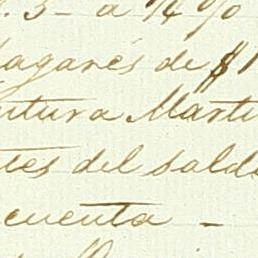 .3- a 14 %
pagarés de $1
entura Marti
tes del saldo
cuenta -